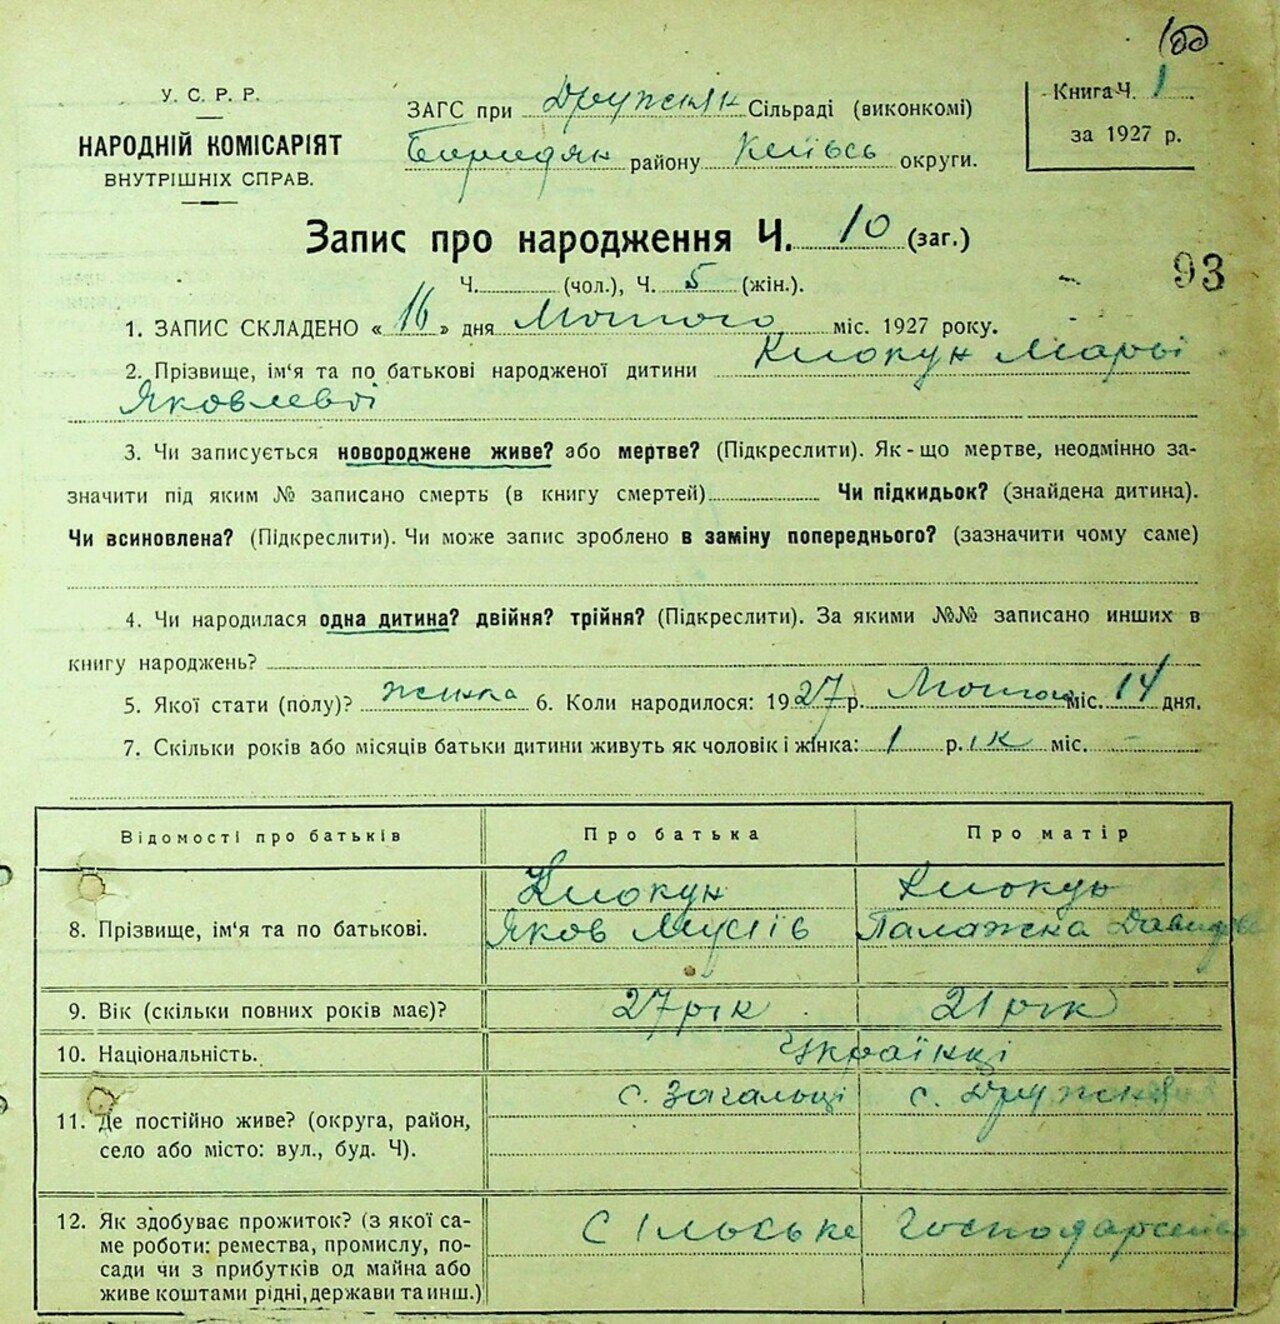 100
У. С. Р. Р.
НАРОДНІЙ КОМІСАРІЯТ
ВНУТРІШНІХ СПРАВ.
ЗАГС при Дружняк Сільраді (виконкомі)
Бородян району Київсь округи.
Книга Ч. 1
за 1927 р.
Запис про народження Ч. 10 (заг.)
Ч. (чол.), Ч. 5 (жін.).
93
1. ЗАПИС СКЛАДЕНО « 16 » дня Лютого міс. 1927 року.
2. Прізвище, ім‘я та по батькові народженої дитини Клокун Марії
Яковлевої
3. Чи записується новороджене живе? або мертве? (Підкреслити). Як-що мертве, неодмінно за-
значити під яким № записано смерть (в книгу смертей) Чи підкидьок? (знайдена дитина).
Чи всиновлена? (Підкреслити). Чи може запис зроблено в заміну попереднього? (зазначити чому саме)
4. Чи народилася одна дитина? двійня? трійня? (Підкреслити). За якими №№ записано инших в
книгу народжень?
5. Якої стати (полу)? жінка 6. Коли народилося: 1927 р. Лютого міс. 14 дня.
7. Скільки років або місяців батьки дитини живуть як чоловік і жінка: 1 р.ік міс. -
Відомості про батьків Про батька Про матір
Клокун Клокун
8. Прізвище, ім‘я та по батькові. Яков Мусіїв Палажка Давидове
9. Вік (скільки повних років має)? 27 рік 21 рік
10. Національність. Українці
с. Загальці с. Дружня
11. Де постійно живе? (округа, район,
село або місто: вул., буд. Ч).
12. Як здобуває прожиток? (з якої са- Сільське Господарство
ме роботи: ремества, промислу, по-
сади чи з прибутків од майна або
живе коштами рідні, держави та инш.)